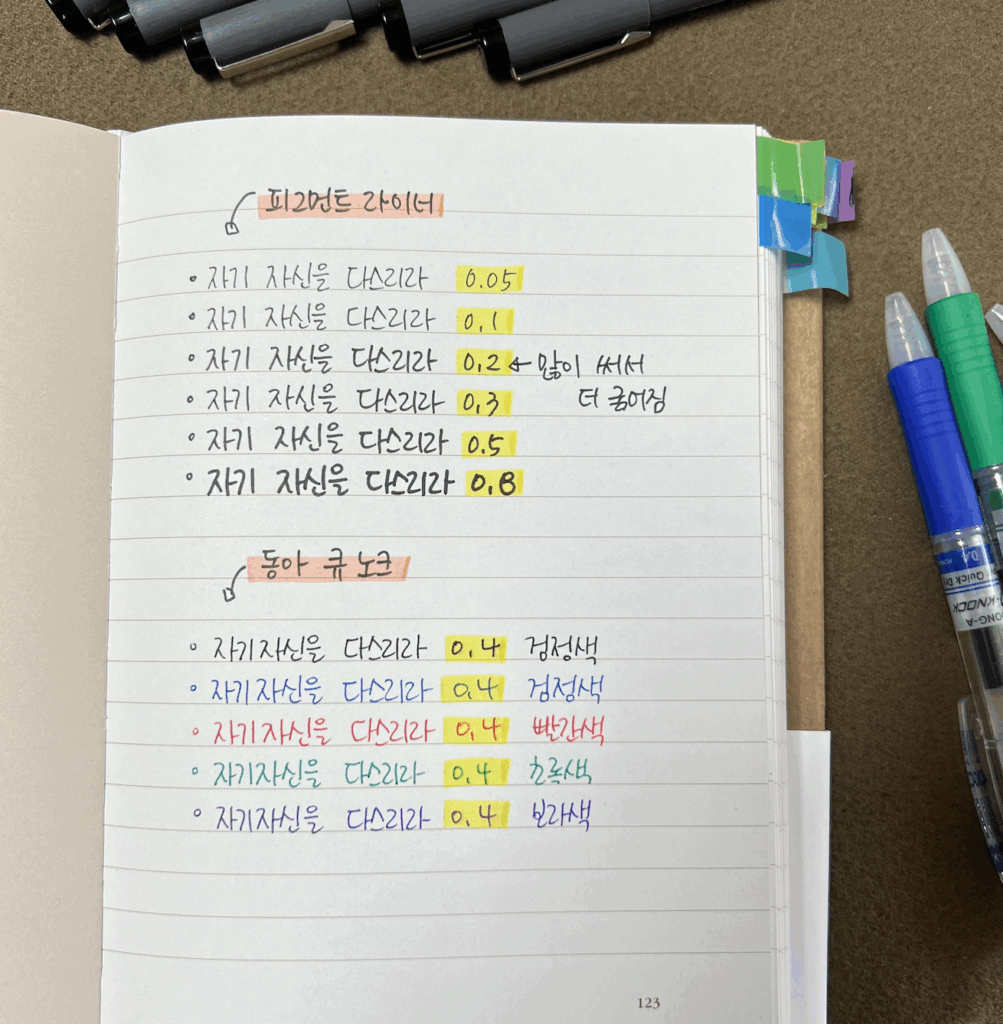 피그먼트 라이너
• 자기 자신을 다스리라 0.05
• 자기 자신을 다스리라 0.1
• 자기 자신을 다스리라 0.2 ← 많이 써서
더 굵어짐
• 자기 자신을 다스리라 0.3
• 자기 자신을 다스리라 0.5
• 자기 자신을 다스리라 0.8
동아 큐 노크
• 자기자신을 다스리라 0.4 검정색
• 자기자신을 다스리라 0.4 검정색
• 자기자신을 다스리라 0.4 빨간색
• 자기자신을 다스리라 0.4 초록색
• 자기자신을 다스리라 0.4 보라색
123
0.4
Quick Dry
-KNOCK
ONG-A